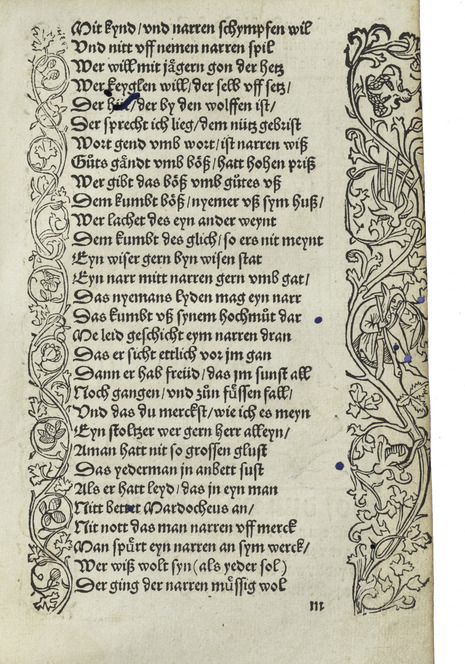 Mit kynd/vnd narren schympfen wil
Vnd nitt vff nemen narren spil
Wer will mit jaͤgern gon der hetz
Wer keyglen will/der selb vff setz/
Der /der by den wolffen ist/
Der sprecht ich lieg/dem nütz gebrist
Wort gend vmb wort/ist narren wiß
Guͦts gaͤndt vmb boͤß/hatt hohen priß
Wer gibt das boͤß vmb guͦtes vß
Dem kumbt boͤß/nyemer vß sym huß/
Wer lachet des eyn ander weynt
Dem kumbt des glich/so ers nit meynt
Eyn wiser gern byn wisen stat
Eyn narr mitt narren gern vmb gat/
Das nyemans lyden mag eyn narr
Das kumbt vß synem hochmuͦt dar
Me leid geschicht eym narren dran
Das er sicht ettlich vor jm gan
Dann er hab freüd/das jm sunst all
Noch gangen/vnd zuͦn fuͤssen fall/
Vnd das du merckst/wie ich es meyn
Eyn stoltzer wer gern herr alleyn/
Aman hatt nit so grossen glust
Das yederman in anbett sust
Als er hatt leyd/das in eyn man
Nitt bettet Mardocheus an/
Nit nott das man narren vff merck
Man spuͤrt eyn narren an sym werck/
Wer wiß wolt syn (als yeder sol)
Der ging der narren muͤssig wol
m